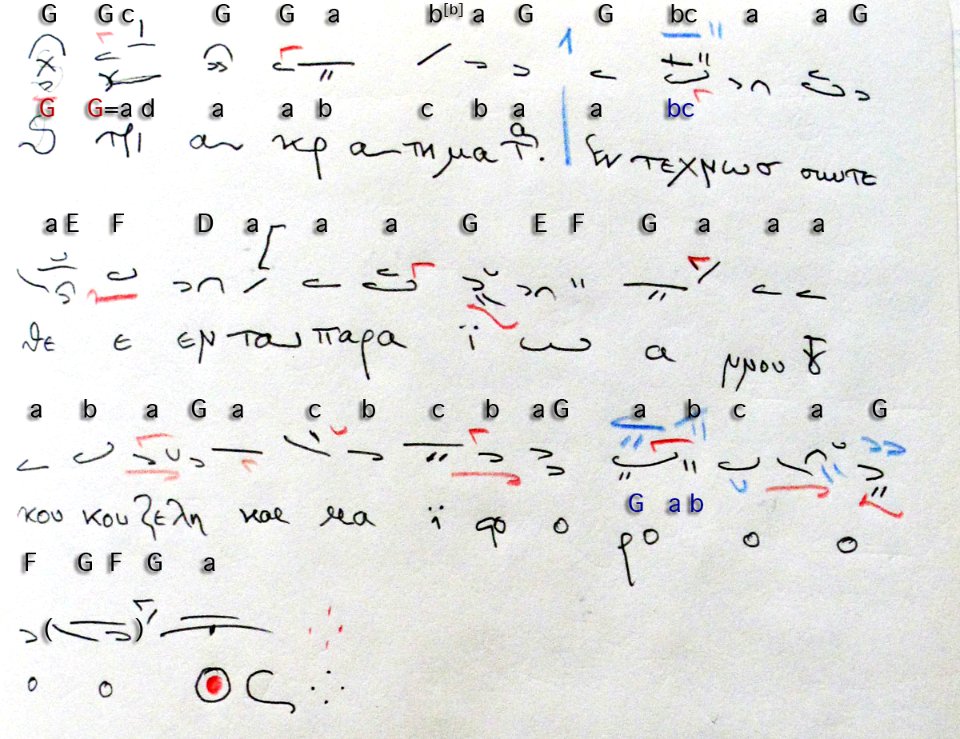 G G c G G a b[b] a G G bc a a G
G G=a d a a b c b a a bc
κρ α τη μα τ. Εν τεχνωσ
a E F D a a a G E F G a a a
θε ε εν ται παρα ϊ ω α ννου
a b a G a c b c b a G a b c a G
G a b
κου κου ζελη και μα ϊ ο ρο ο ο
F G F G a
ο ο ο ς